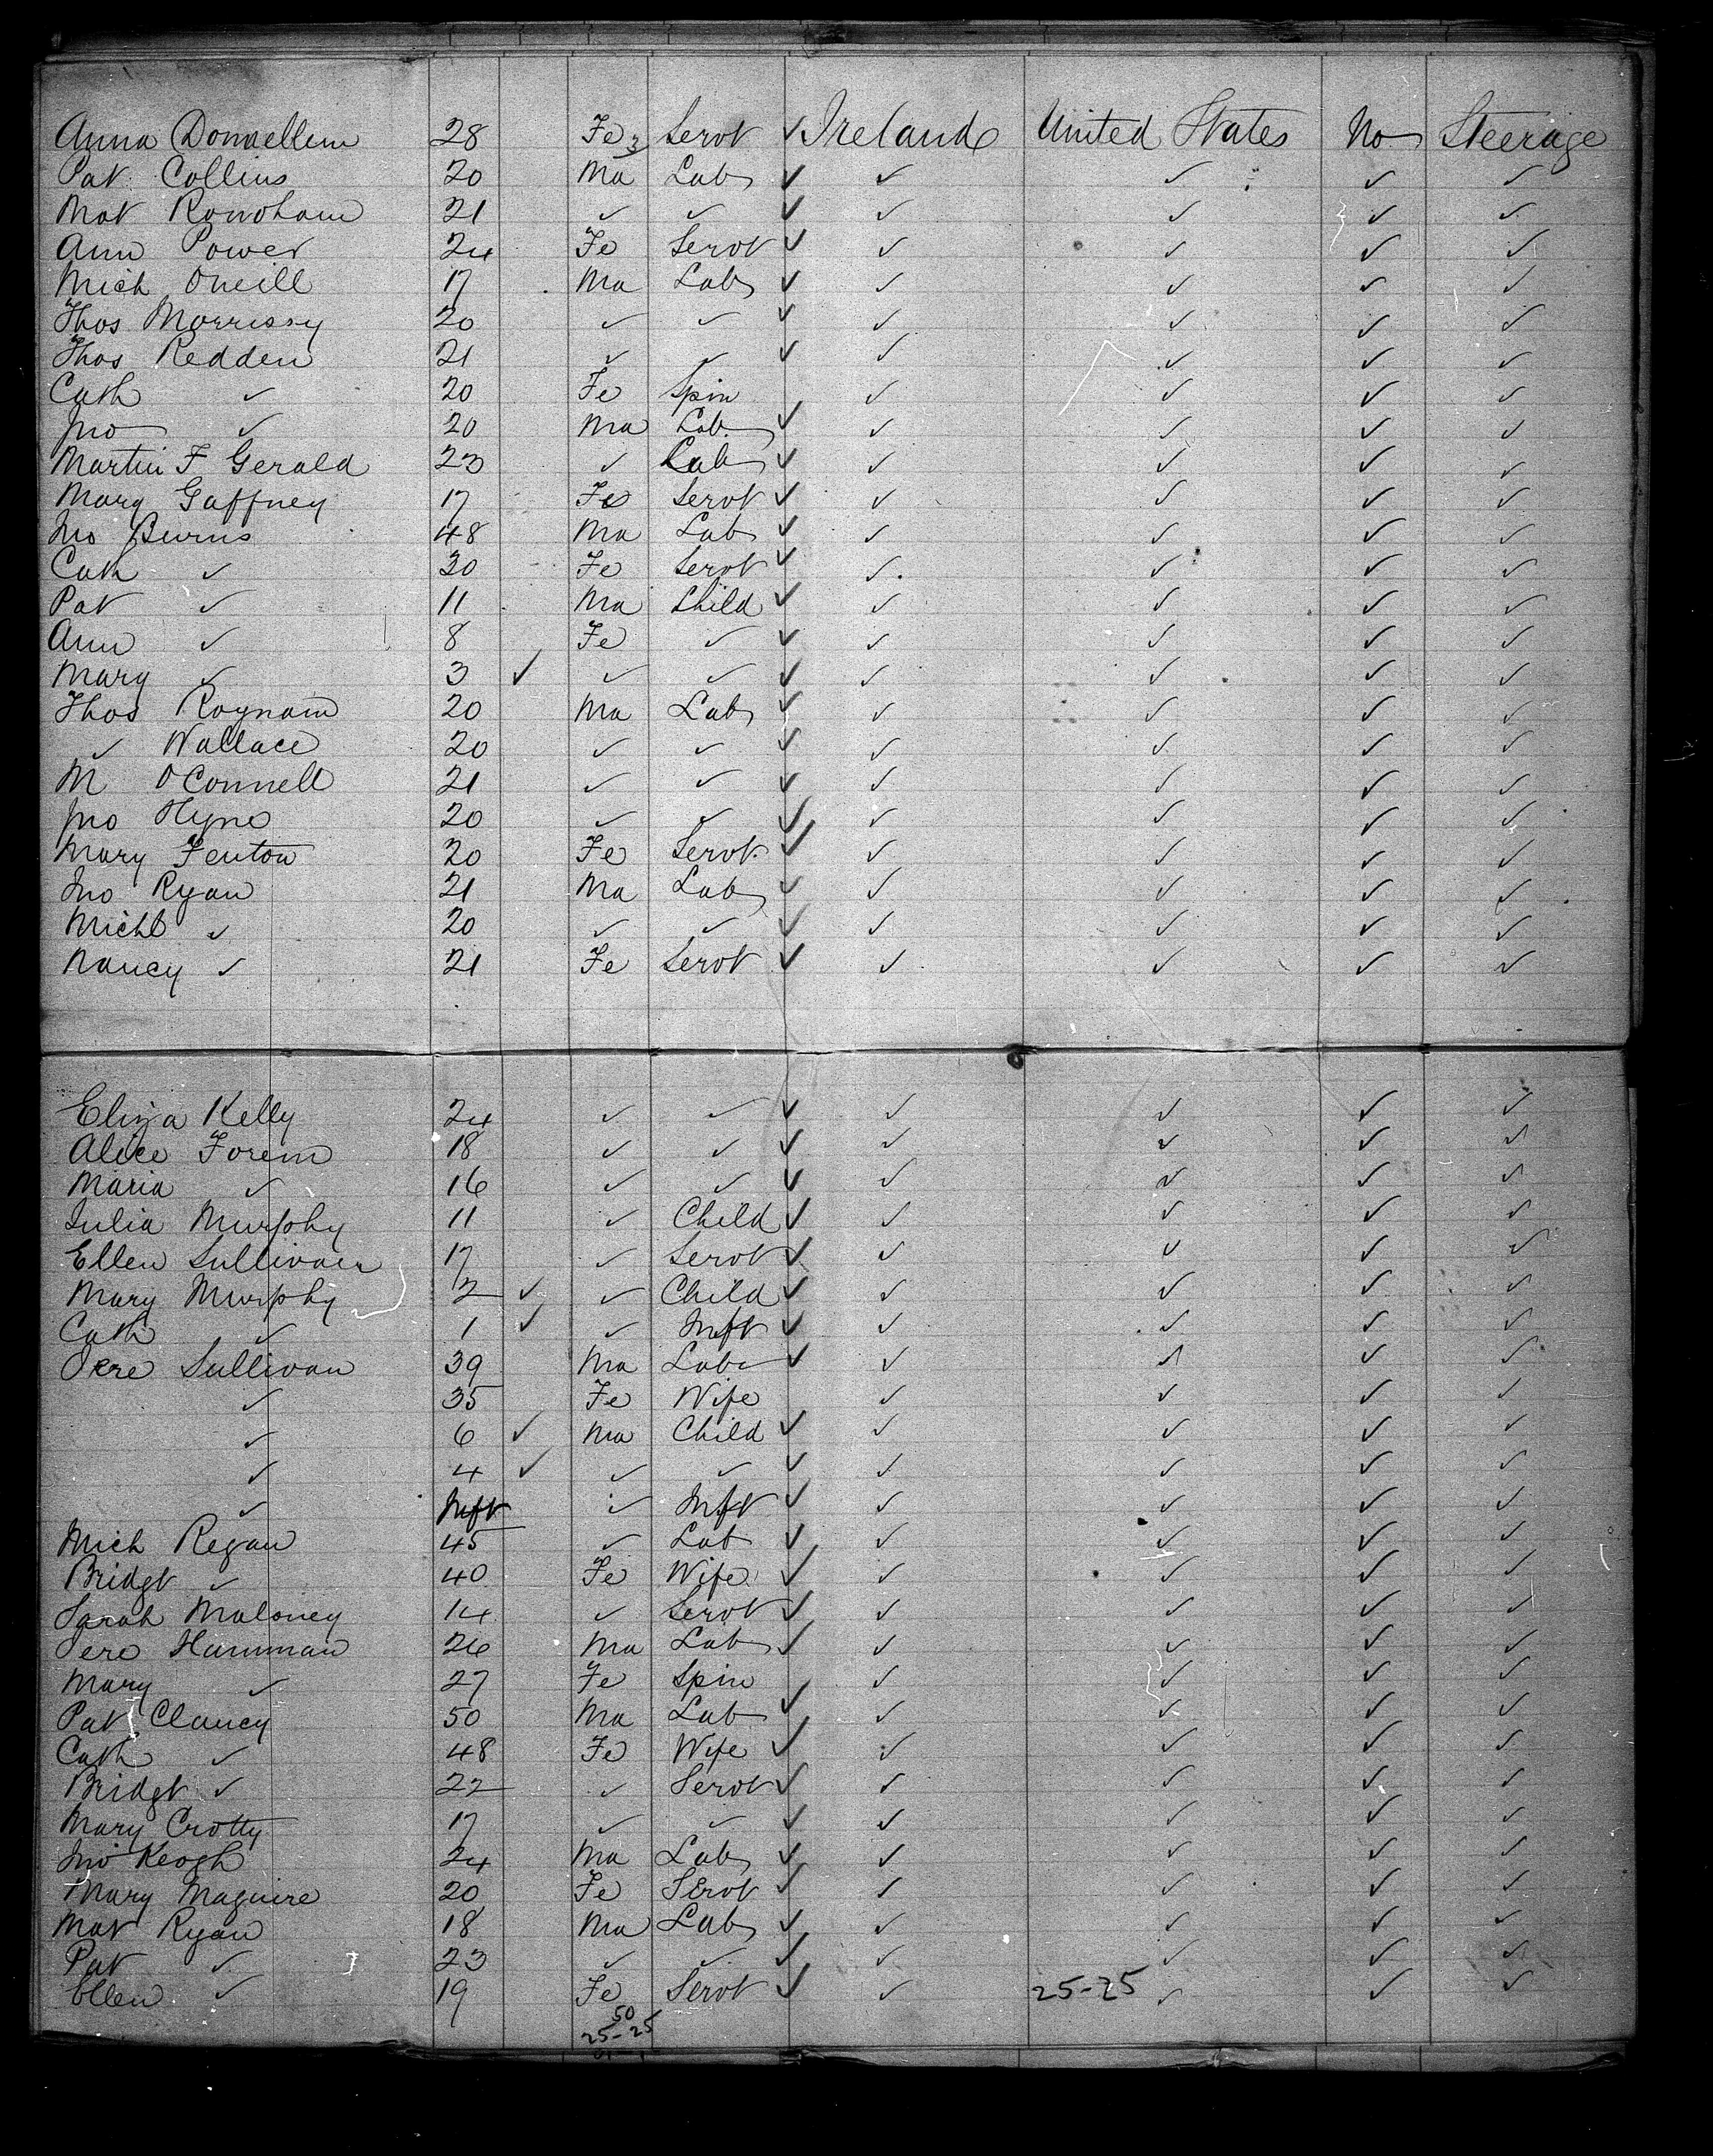 Anna Donnellem 28 Fe Servt ✓ Ireland United States No Steerage
Pat Collins 20 Ma Lab ✓ ✓ ✓ ✓ ✓
Mat 21 ✓ ✓ ✓ ✓ ✓ ✓ ✓
Ann Power 24 Fe Servt ✓ ✓ ✓ ✓ ✓
Mich ONeill 17 Ma Lab ✓ ✓ ✓ ✓ ✓
Thos Morrissy 20 ✓ ✓ ✓ ✓ ✓ ✓ ✓
Thos Redden 21 ✓ ✓ ✓ ✓ ✓ ✓ ✓
Cath ✓ 20 Fe Spin ✓ ✓ ✓ ✓
Jno ✓ 20 Ma Lab ✓ ✓ ✓ ✓ ✓
Martin F Gerald 23 ✓ Lab ✓ ✓ ✓ ✓ ✓
Mary Gaffney 17 Fe Servt ✓ ✓ ✓ ✓ ✓
Jno Burns 48 Ma Lab ✓ ✓ ✓ ✓ ✓
Cath ✓ 30 Fe Servt ✓ ✓ ✓ ✓ ✓
Pat ✓ 11 Ma Child ✓ ✓ ✓ ✓ ✓
Ann ✓ 8 Fe ✓ ✓ ✓ ✓ ✓ ✓
Mary ✓ 3 ✓ ✓ ✓ ✓ ✓ ✓ ✓ ✓
Thos Roynam 20 Ma Lab ✓ ✓ ✓ ✓ ✓
✓ Wallace 20 ✓ ✓ ✓ ✓ ✓ ✓ ✓
M OConnell 21 ✓ ✓ ✓ ✓ ✓ ✓ ✓
Jno Hyne 20 ✓ ✓ ✓ ✓ ✓ ✓ ✓
Mary Fenton 20 Fe Servt ✓ ✓ ✓ ✓ ✓
Jno Ryan 21 Ma Lab ✓ ✓ ✓ ✓ ✓
Michl ✓ 20 ✓ ✓ ✓ ✓ ✓ ✓ ✓
Nancy ✓ 21 Fe Servt ✓ ✓ ✓ ✓ ✓
Eliza Kelly 24 ✓ ✓ ✓ ✓ ✓ ✓ ✓
Alice Forem 18 ✓ ✓ ✓ ✓ ✓ ✓ ✓
Maria ✓ 16 ✓ ✓ ✓ ✓ ✓ ✓ ✓
Julia Murphy 11 ✓ Child ✓ ✓ ✓ ✓ ✓
Ellen Sullivan 17 ✓ Servt ✓ ✓ ✓ ✓ ✓
Mary Murphy 2 ✓ ✓ Child ✓ ✓ ✓ ✓ ✓
Cath ✓ 1 ✓ ✓ Inft ✓ ✓ ✓ ✓ ✓
Jere Sullivan 39 Ma Lab ✓ ✓ ✓ ✓ ✓
✓ 35 Fe Wife ✓ ✓ ✓ ✓
✓ 6 ✓ Ma Child ✓ ✓ ✓ ✓ ✓
✓ 4 ✓ ✓ ✓ ✓ ✓ ✓ ✓ ✓
✓ Inft ✓ Inft ✓ ✓ ✓ ✓ ✓
Mich Regan 45 ✓ Lab ✓ ✓ ✓ ✓ ✓
Bridgt ✓ 40 Fe Wife ✓ ✓ ✓ ✓ ✓
Sarah Maloney 14 ✓ Servt ✓ ✓ ✓ ✓ ✓
Jere Hamman 26 Ma Lab ✓ ✓ ✓ ✓ ✓
Mary ✓ 27 Fe Spin ✓ ✓ ✓ ✓
Pat Clancy 50 Ma Lab ✓ ✓ ✓ ✓ ✓
Cath ✓ 48 Fe Wife ✓ ✓ ✓ ✓ ✓
Bridgt ✓ 22 ✓ Servt ✓ ✓ ✓ ✓ ✓
Mary Crotty 17 ✓ ✓ ✓ ✓ ✓ ✓ ✓
Jno Keogh 24 Ma Lab ✓ ✓ ✓ ✓ ✓
Mary Maguire 20 Fe Servt ✓ ✓ ✓ ✓ ✓
Mat Ryan 18 Ma Lab ✓ ✓ ✓ ✓ ✓
Pat ✓ 23 ✓ ✓ ✓ ✓ ✓ ✓ ✓
Ellen ✓ 19 Fe Servt ✓ ✓ 25-25 ✓ ✓ ✓
50
25-25